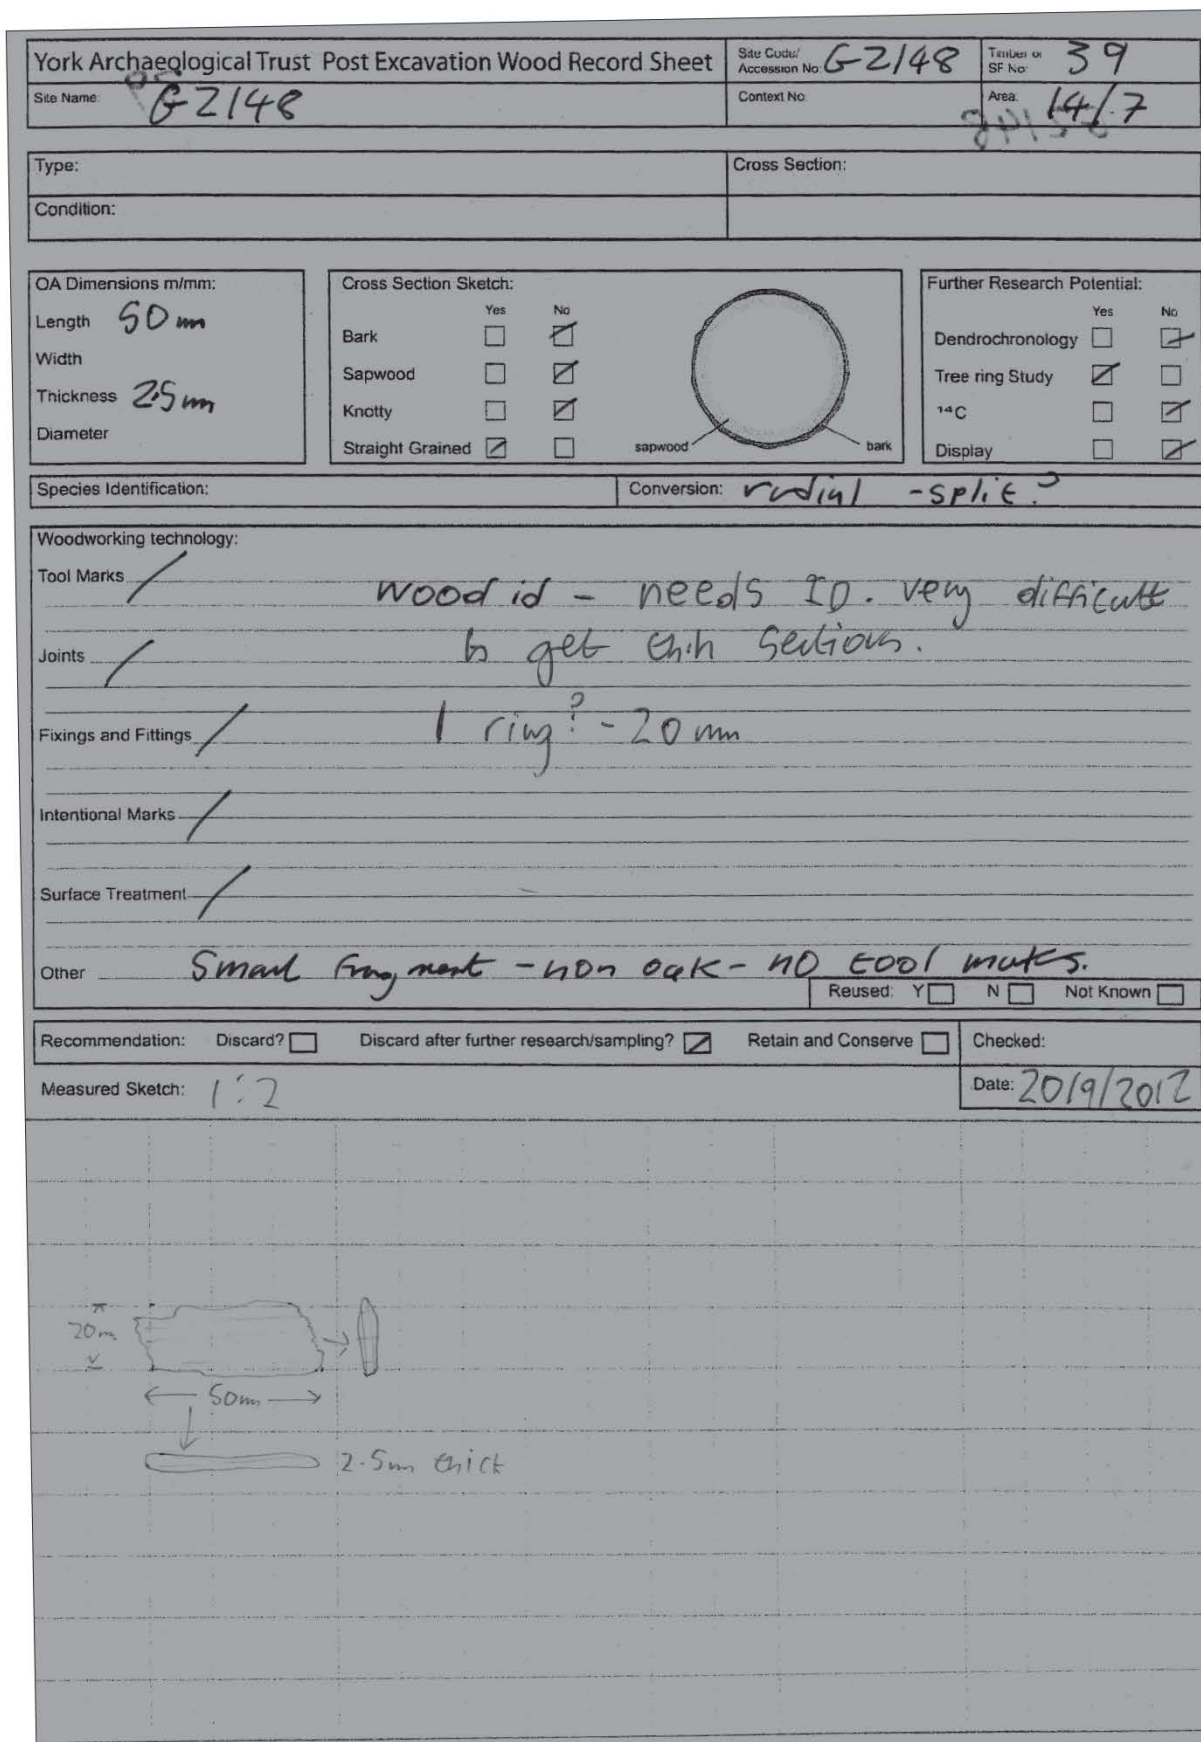 York Archaeological Trust Post Excavation Wood Record Sheet
Site Code/ Accession No: GZ148
Timber or SF No: 39
Site Name: GZ148
Context No:
Area: 14/7
Type:
Cross Section:
Condition:
OA Dimensions m/mm:
Length 50 mm
Width
Thickness 2.5 mm
Diameter
Cross Section Sketch:
Yes No
Bark
Sapwood
Knotty
Straight Grained
sapwood
bark
Further Research Potential:
Yes No
Dendrochronology
Tree ring Study
¹⁴C
Display
Species Identification:
Conversion: radial - split?
Woodworking technology:
Tool Marks /
wood id - needs ID. very difficult
to get thin sections.
Joints /
Fixings and Fittings /
1 ring? - 20 mm
Intentional Marks /
Surface Treatment /
Other Small fragment - non oak - no tool marks.
Reused: Y N Not Known
Recommendation: Discard? Discard after further research/sampling? Retain and Conserve
Checked:
Measured Sketch: 1:2
Date: 20/9/2012
20m
50mm
2.5mm thick